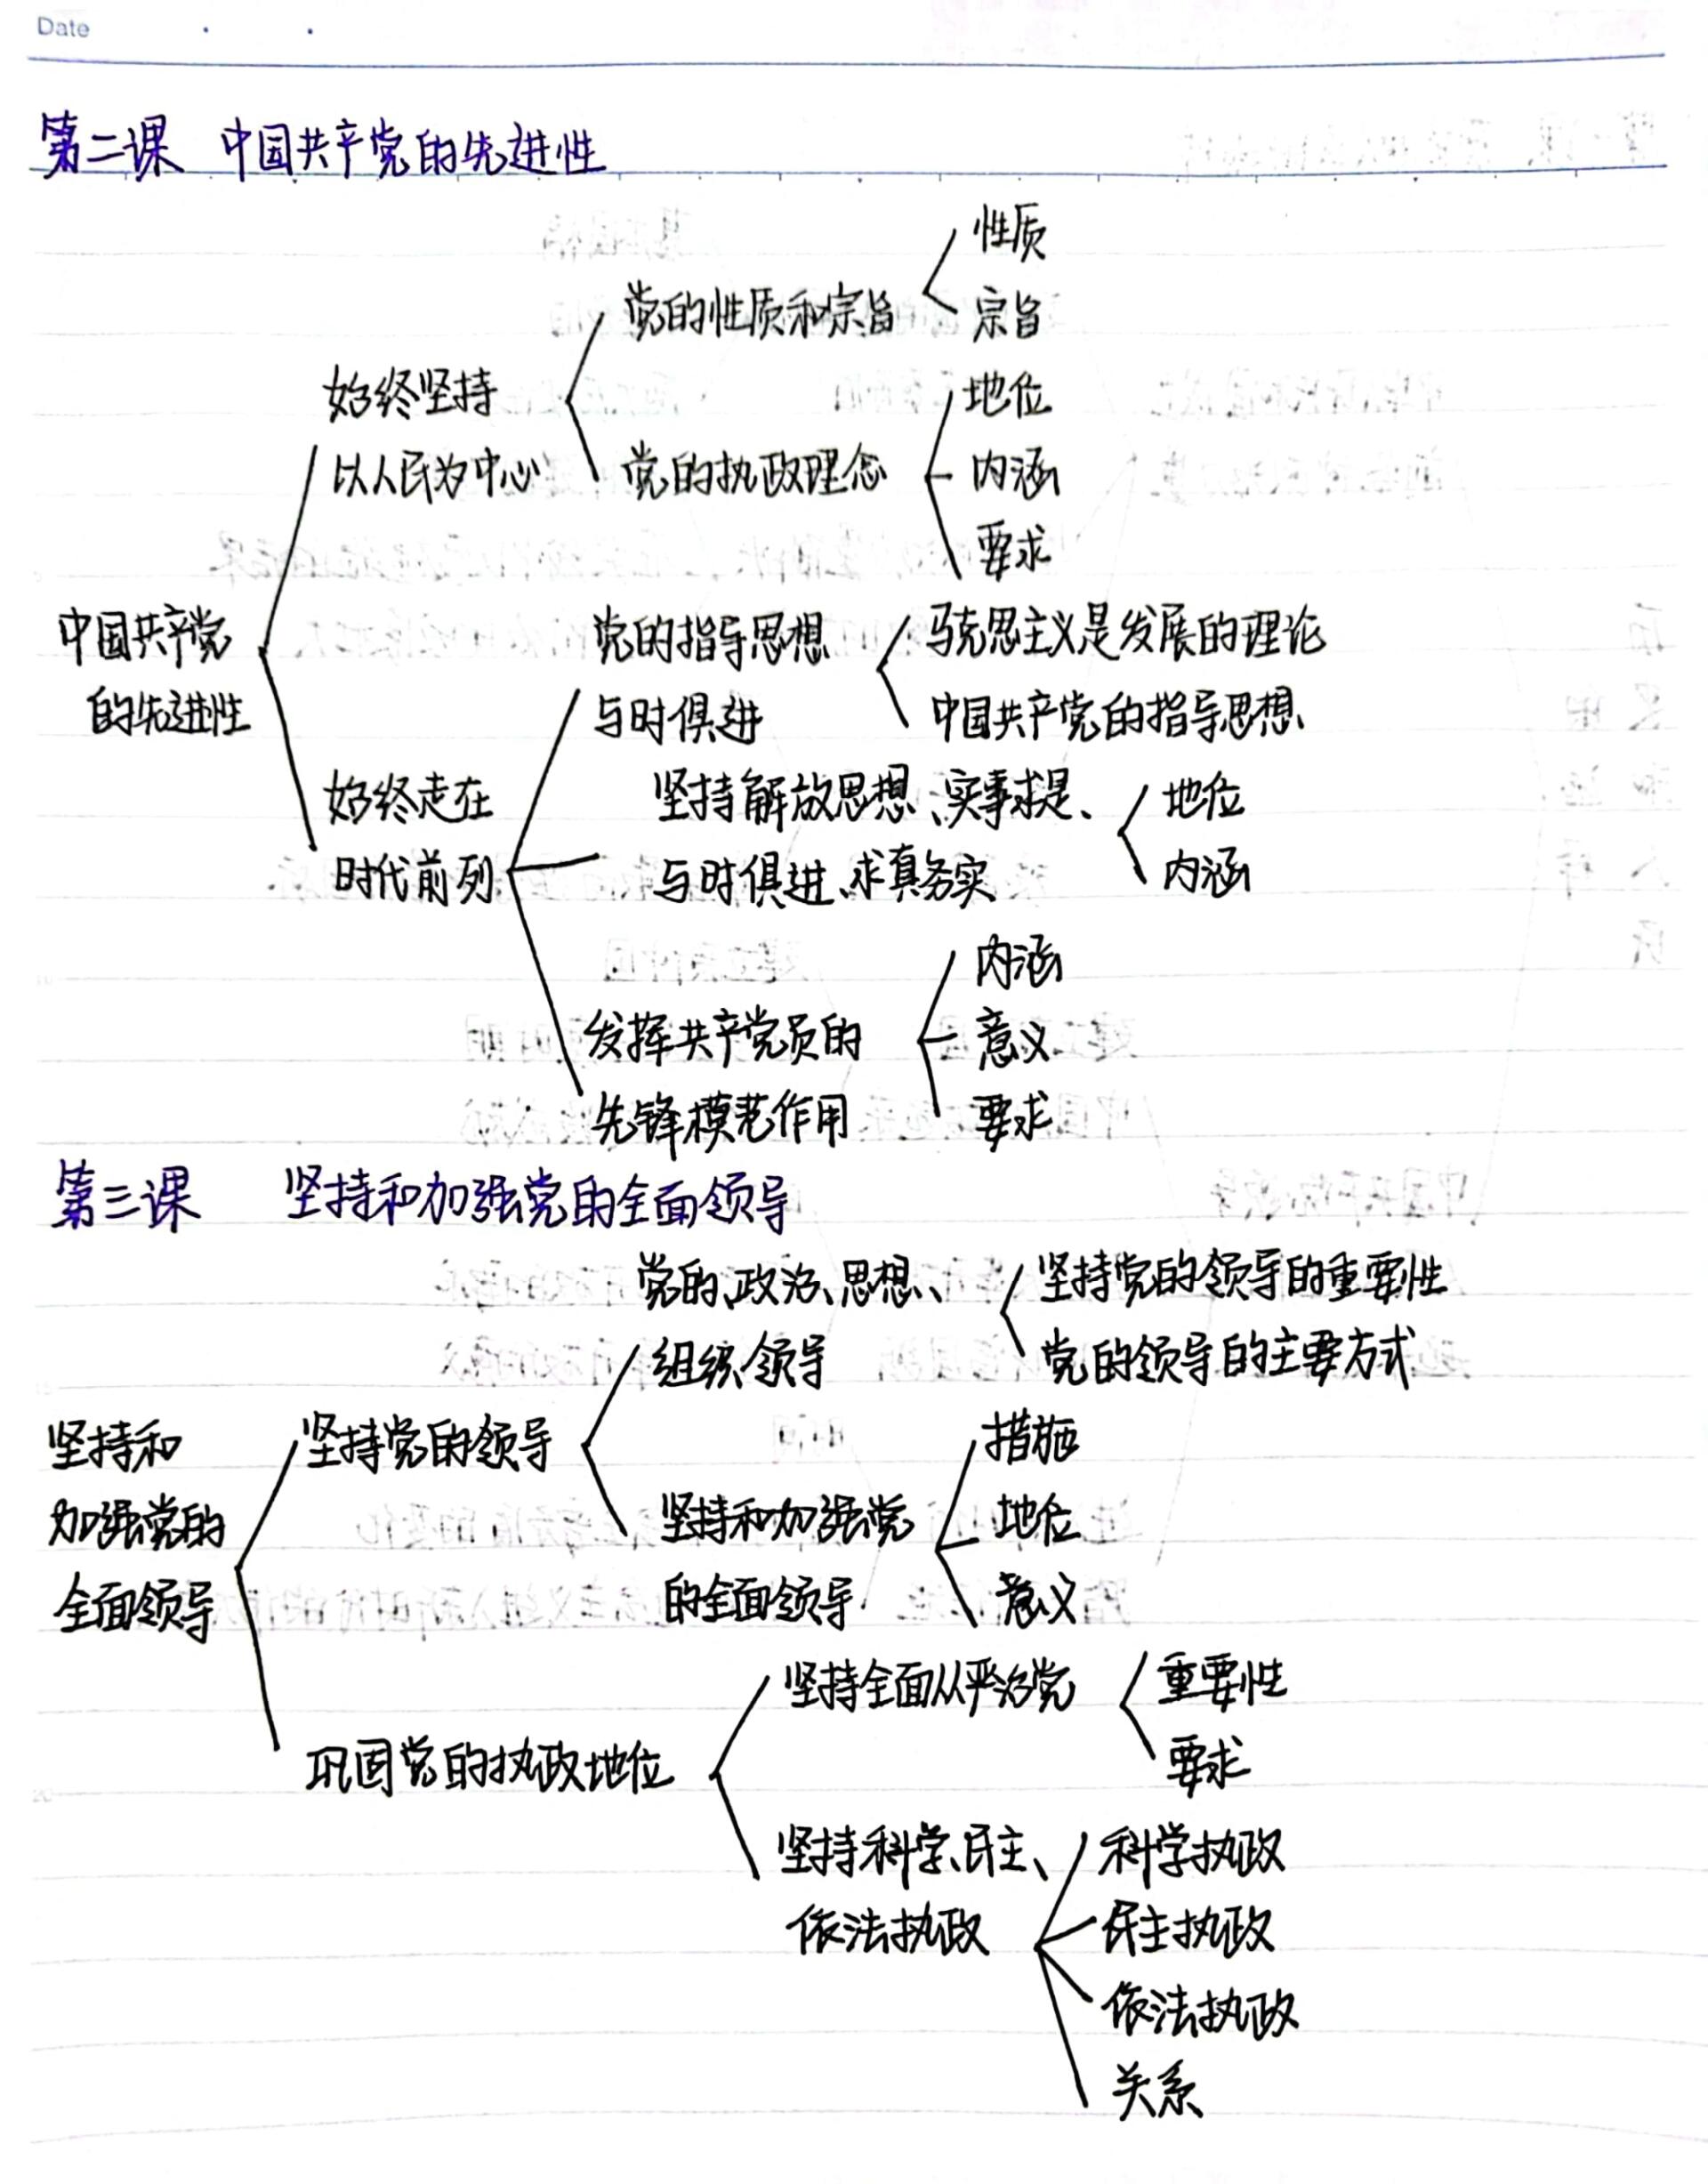 Date
第二课 中国共产党的先进性
性质
党的性质和宗旨
宗旨
始终坚持
地位
以人民为中心
党的执政理念
内涵
要求
中国共产党
党的指导思想
马克思主义是发展的理论
的先进性
与时俱进
中国共产党的指导思想
始终走在
坚持解放思想、实事求是、
地位
时代前列
与时俱进、求真务实
内涵
内涵
发挥共产党员的
意义
先锋模范作用
要求
第三课 坚持和加强党的全面领导
党的、政治、思想、
坚持党的领导的重要性
组织领导
党的领导的主要方式
坚持和
坚持党的领导
措施
加强党的
坚持和加强党
地位
全面领导
的全面领导
意义
坚持全面从严治党
重要性
巩固党的执政地位
要求
坚持科学、民主、
科学执政
依法执政
民主执政
依法执政
关系